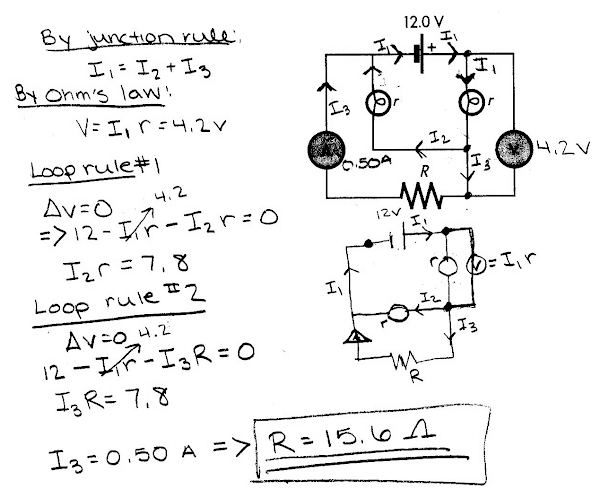 By junction rule:
I₁ = I₂ + I₃
By Ohm's law:
V = I₁ r = 4.2 V
Loop rule #1
ΔV = 0
4.2
=> 12 - I₁r - I₂r = 0
I₂r = 7.8
Loop rule #2
ΔV = 0
4.2
12 - I₁r - I₃R = 0
I₃R = 7.8
I₃ = 0.50 A => R = 15.6 Ω
12.0 V
I₁ + I₁
I₁
r
r
I₃
I₂
A
0.50A
I₃
V
4.2V
R
12V
I₁
r
V = I₁r
I₁
I₂
r
I₃
A
R